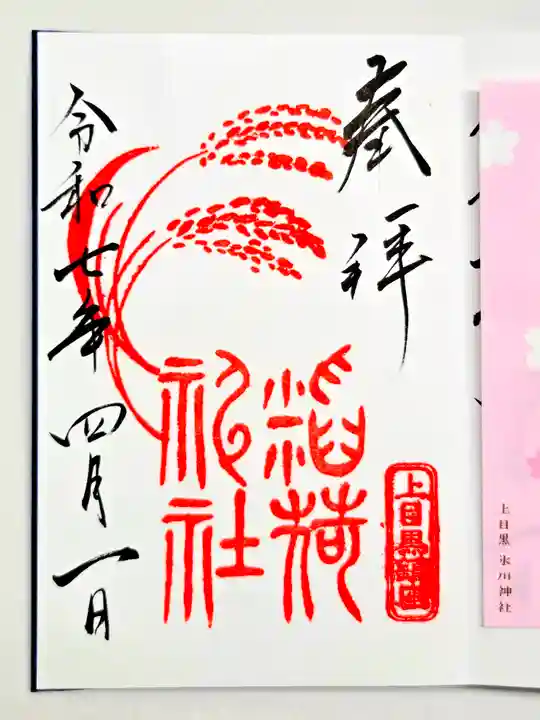 奉拝
稲荷
神社
上目黒鎮座
令和七年四月一日
上目黒 氷川神社